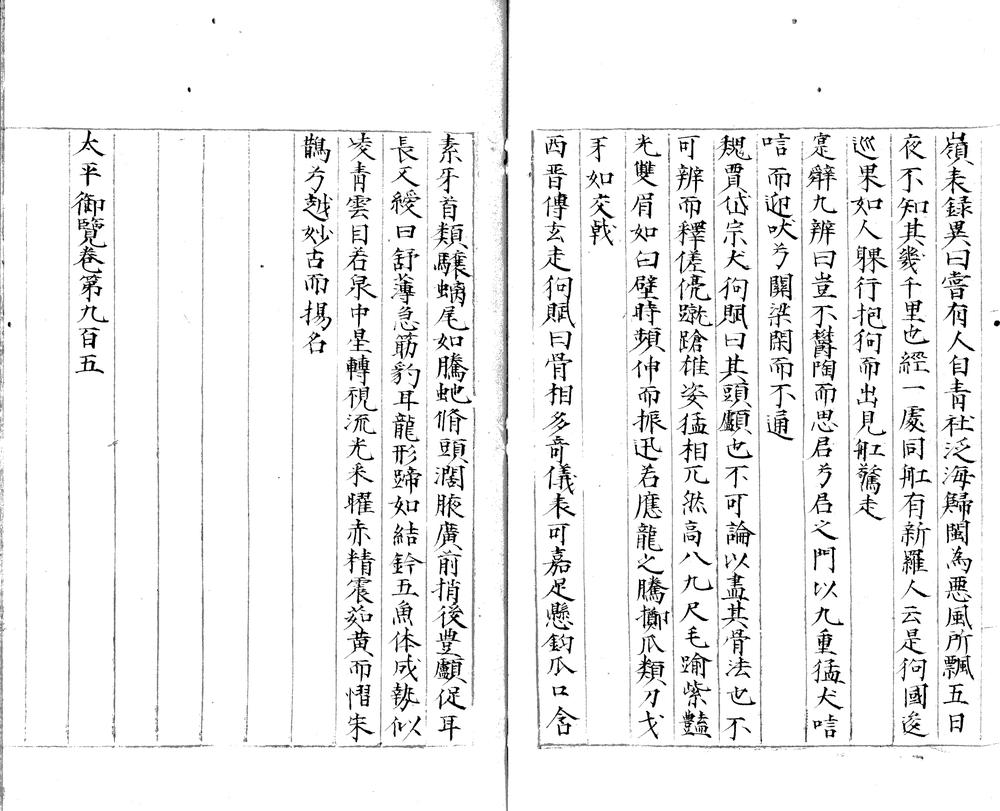 嶺表録異曰嘗有人自青社泛海歸閩為悪風所飄五日
夜不知其幾千里也經一處同舡有新羅人云是狗國逡
巡果如人躶行抱狗而出見舡驚走
寔辭九辨曰豈不欝陶而思君兮君之門以九重猛犬唁
唁而迎吠兮関梁閇而不通
魏賈岱宗犬狗賦曰其頭顱也不可論以盡其骨法也不
可辨而釋傞傥蹴蹌雄姿猛相兀然高八九尺毛踰紫豔
光雙眉如白壁時頻伸而振迅若應龍之騰擲爪類刀戈
牙如交戟
西晉傅玄走狗賦曰骨相多奇儀表可嘉足懸鈎爪口含
素牙首類驤螭尾如騰虵脩頭濶腋廣前捎後豊顱促耳
長叉綬曰舒薄急筋豹耳龍形蹄如結鈴五魚体成勢似
凌青雲目若泉中星轉視流光釆曜赤精震茹黄而慴宋
鵲兮越妙古而揚名
太平御覽卷第九百五